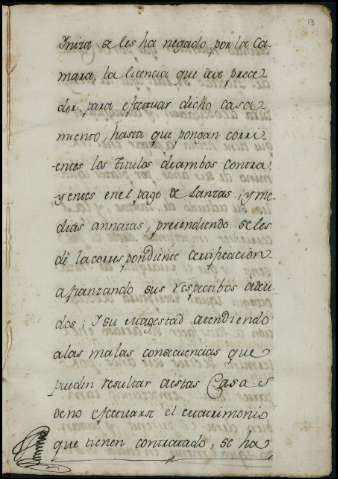 13
se les ha negado por la Ca-
mara, la licencia que deve prece-
der, para efectuar dicho casa-
miento, hasta que pongan corri-
entes los Titulos de ambos contra-
yentes en el pago de Lanzas, y me-
dias annatas, pretendiendo se les
dè la correspondiente certificacion
afianzando sus respectibos adeu-
dos; Y su Magestad atendiendo
a las malas consecuencias que
pueden resultar a estas Casas
de no efectuarse el matrimonio
que tienen contratado, se ha